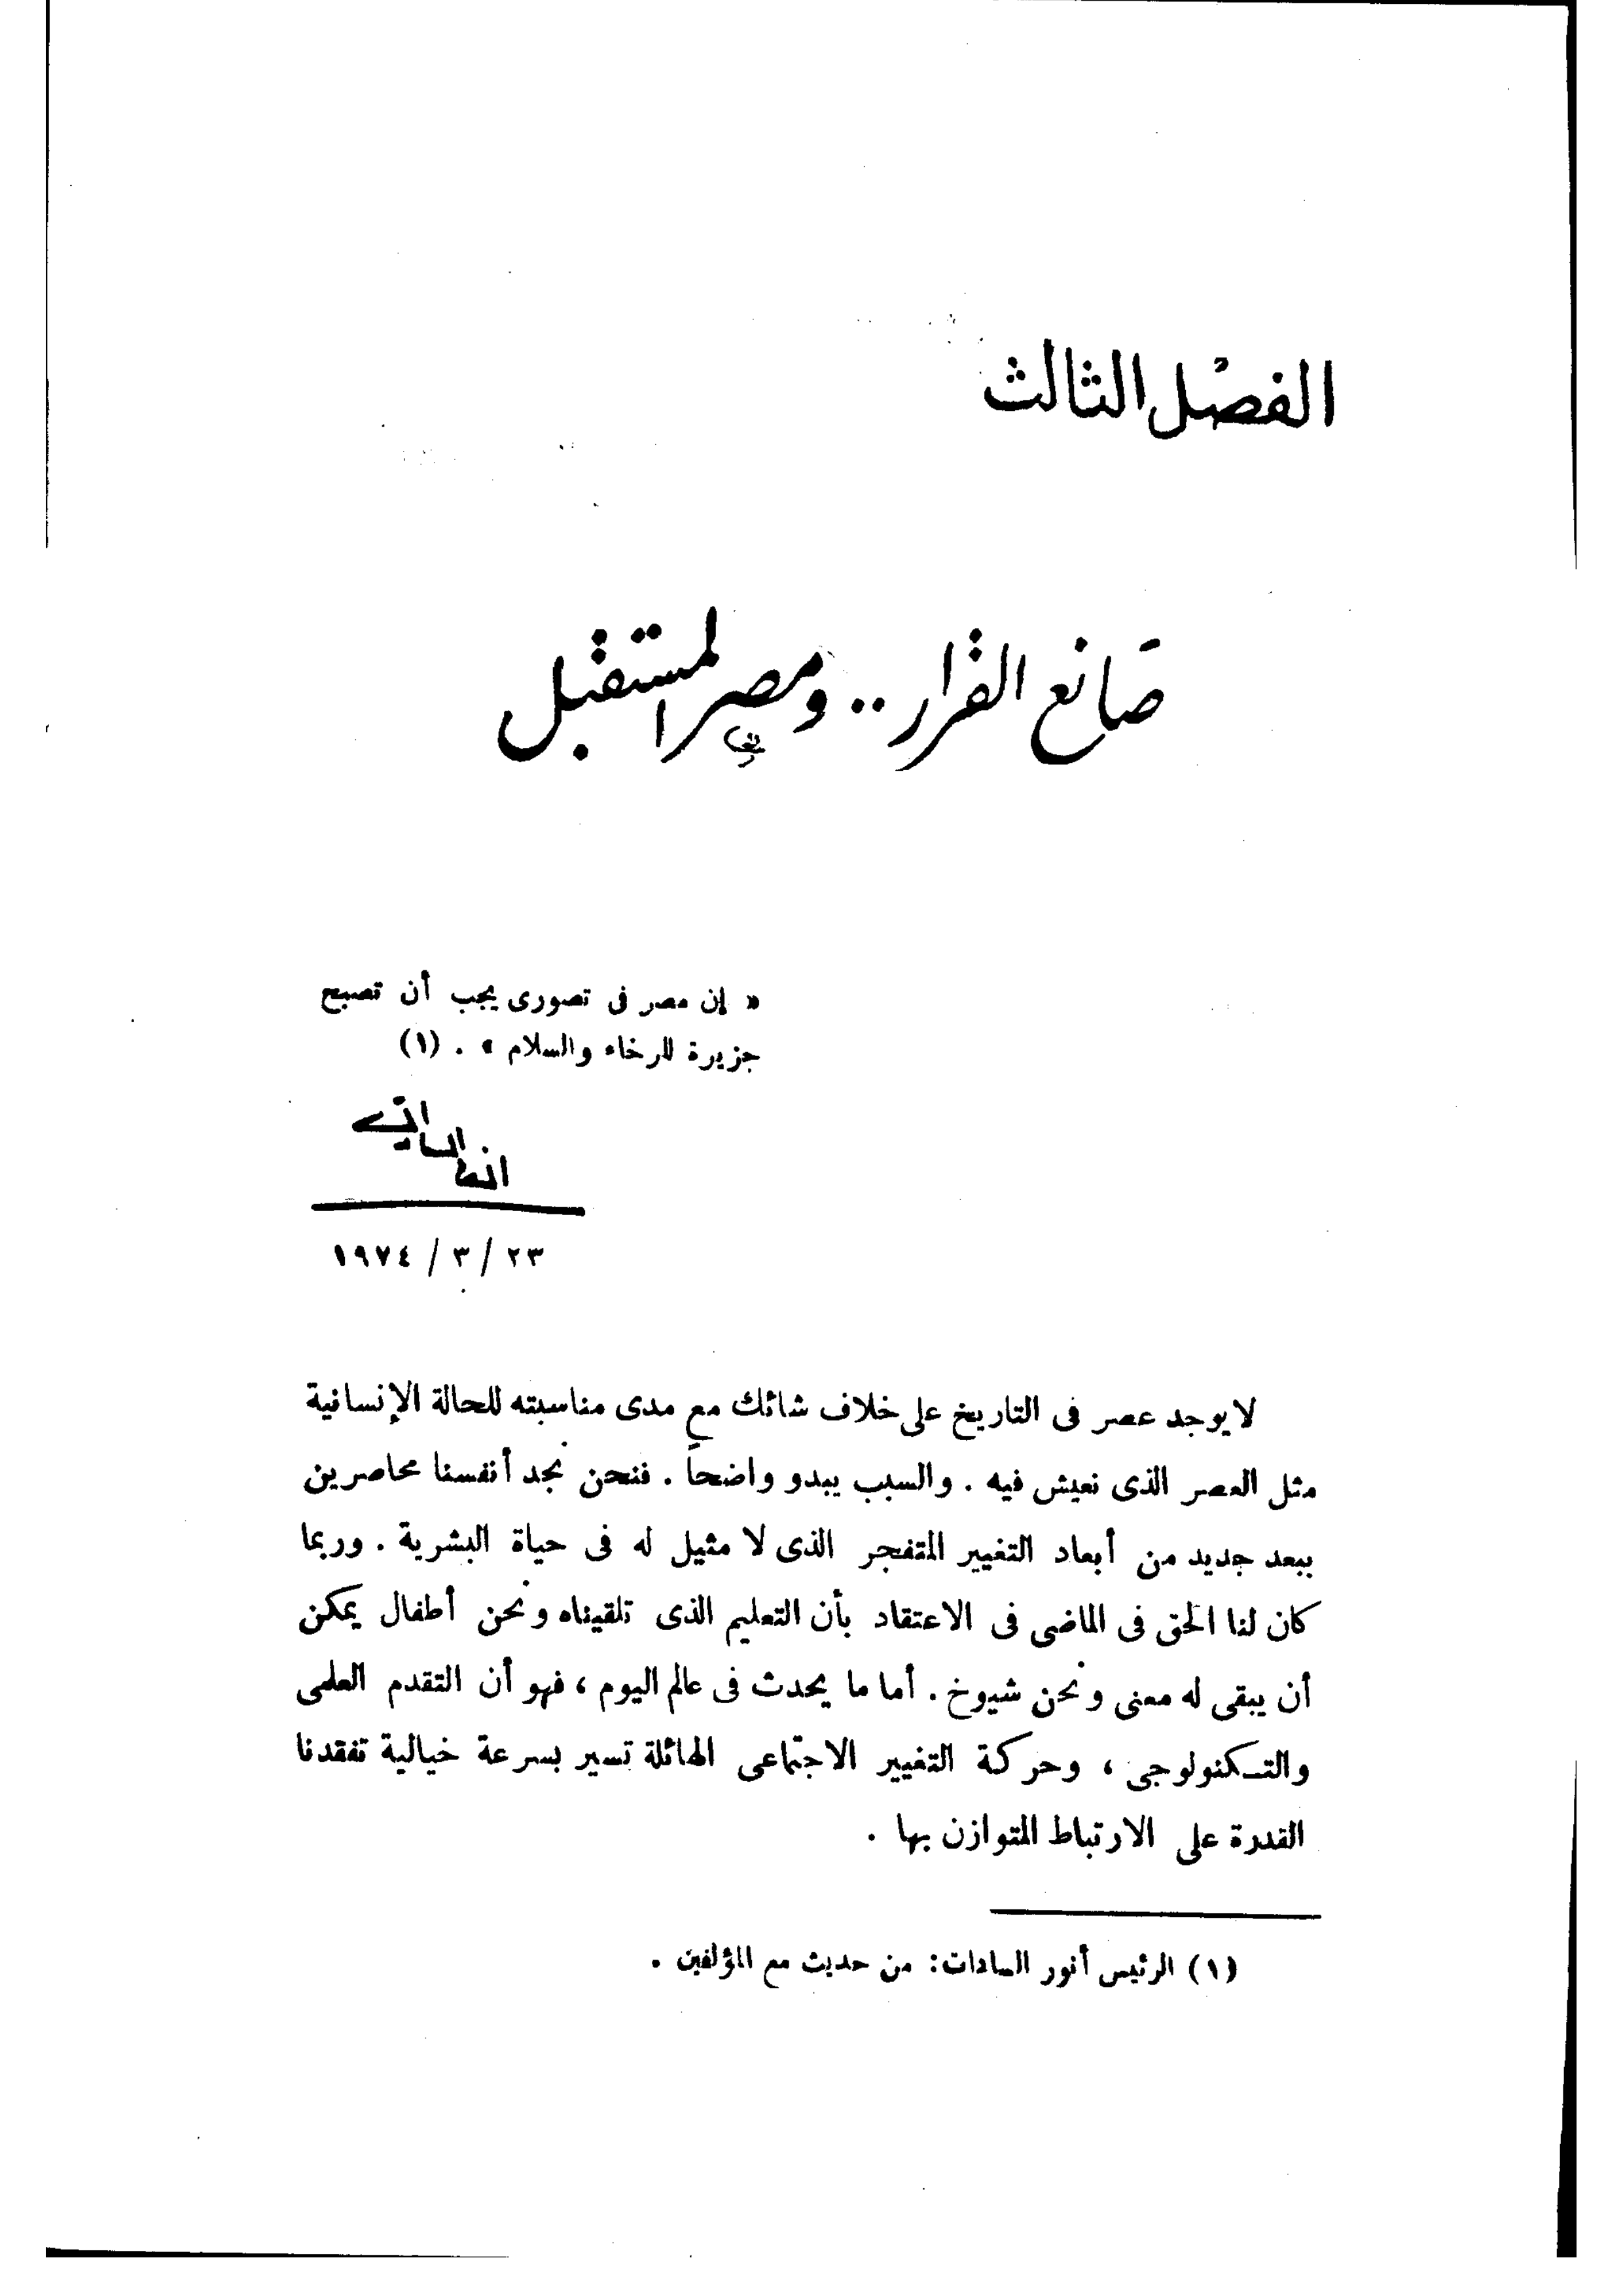 الفصل الثالث
صانع القرار .. ومصر المستقبل
« إن مصر فى تصورى يجب أن تصبح
جزيرة للرخاء والسلام » . (١)
٢٣ / ٣ / ١٩٧٤
لا يوجد عصر فى التاريخ على خلاف شائك مع مدى مناسبته للحالة الإنسانية
مثل العصر الذى نعيش فيه . والسبب يبدو واضحاً . فنحن نجد أنفسنا محاصرين
ببعد جديد من أبعاد التغيير المتفجر الذى لا مثيل له فى حياة البشرية . وربما
كان لنا الحق فى الماضى فى الاعتقاد بأن التعليم الذى تلقيناه ونحن أطفال يمكن
أن يبقى له معنى ونحن شيوخ . أما ما يحدث فى عالم اليوم ، فهو أن التقدم العلمى
والتكنولوجى ، وحركة التغيير الاجتماعى الهائلة تسير بسرعة خيالية تفقدنا
القدرة على الارتباط المتوازن بها .
(١) الرئيس أنور السادات : من حديث مع المؤلفين .